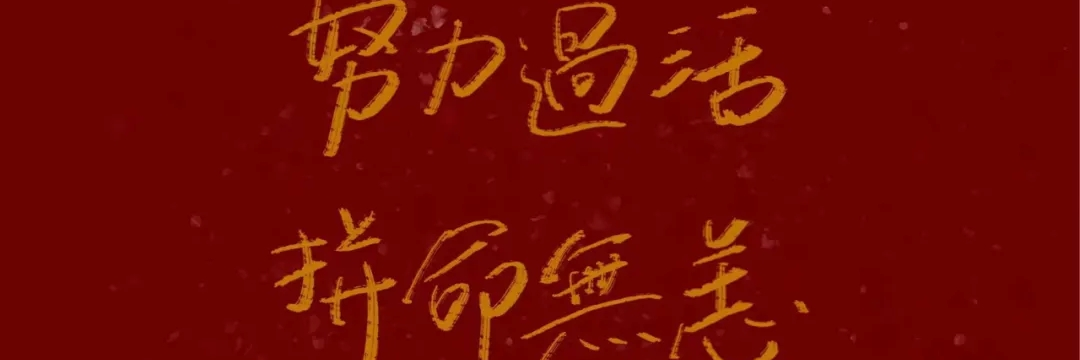 努力過活
拼命無恙